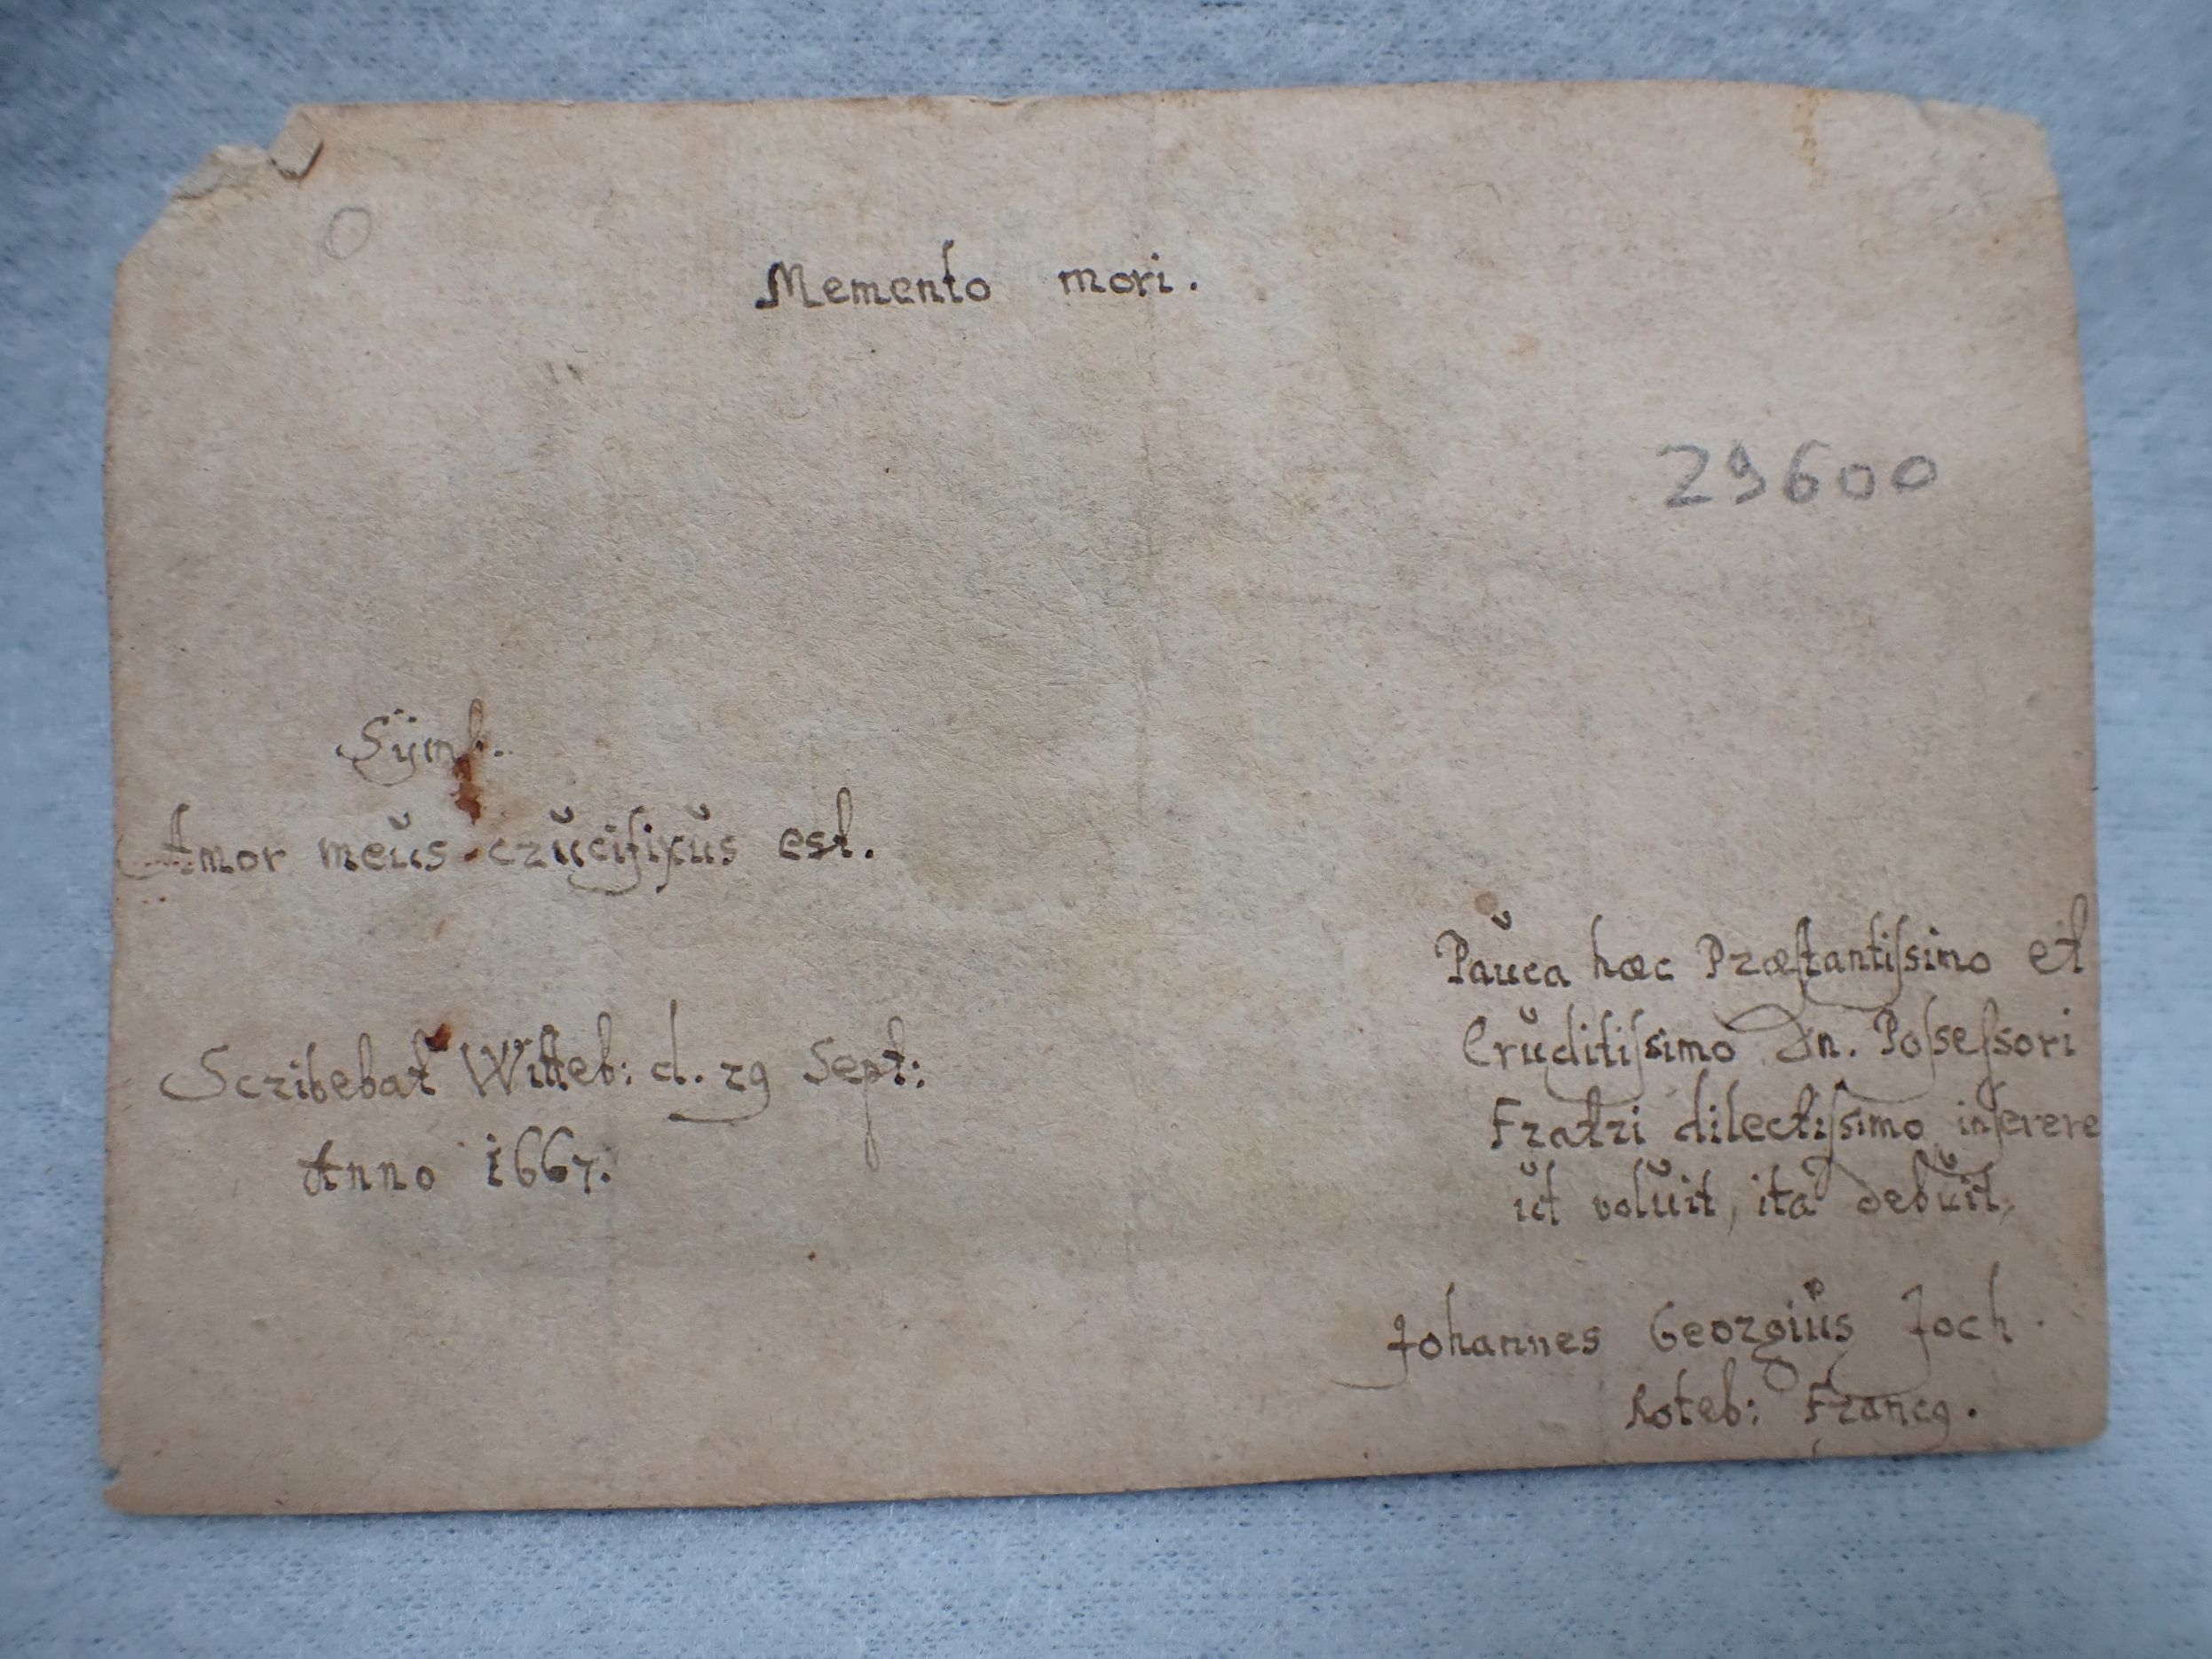 Memento mori.
29600
Sÿmb.
Amor meus crucifixus est.
Scribebat Witteb: d. 29 Sept:
Anno 1667.
Pauca hæc Præstantissimo et
Eruditissimo Dn. Possessori
Fratri dilectissimo inserere
ut voluit, ita debuit,
Johannes Georgius Joch
Roteb: Francq.